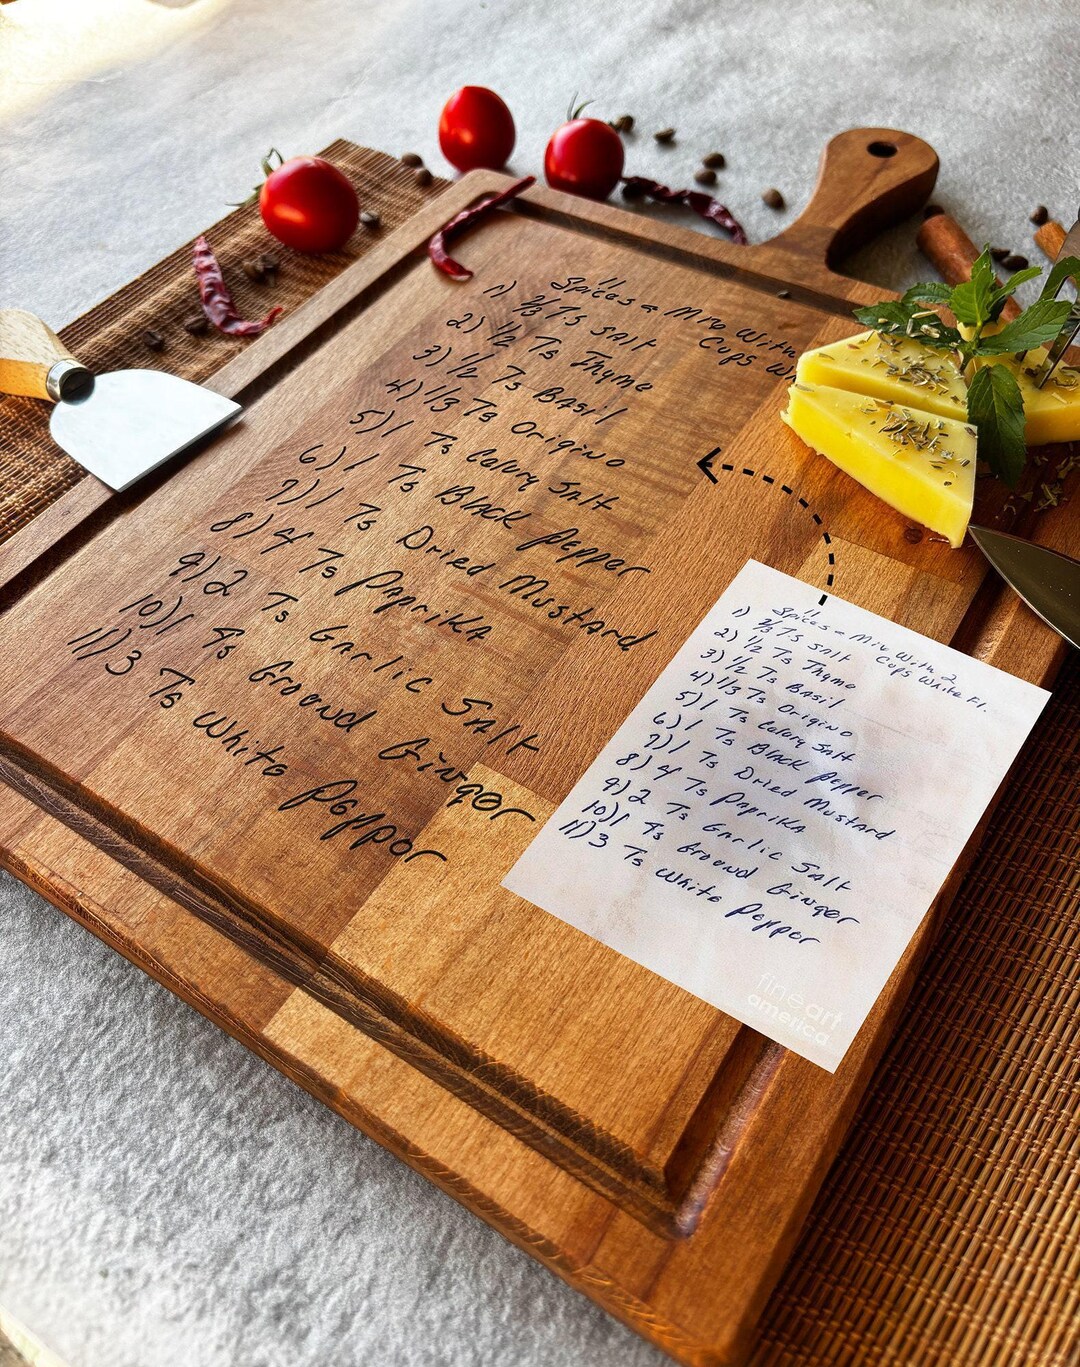 11
Spices = Mix With
Cups W
1) 2/3 Ts Salt
2) 1/2 Ts Thyme
3) 1/2 Ts Basil
4) 1/3 Ts Origino
5) 1 Ts Celury Salt
6) 1 Ts Black Pepper
7) 1 Ts Dried Mustard
8) 4 Ts Paprika
9) 2 Ts Garlic Salt
10) 1 Ts Ground Ginger
11) 3 Ts White Pepper
11
Spices = Mix With 2
Cups White Fl.
1) 2/3 Ts Salt
2) 1/2 Ts Thyme
3) 1/2 Ts Basil
4) 1/3 Ts Origino
5) 1 Ts Celury Salt
6) 1 Ts Black Pepper
7) 1 Ts Dried Mustard
8) 4 Ts Paprika
9) 2 Ts Garlic Salt
10) 1 Ts Ground Ginger
11) 3 Ts White Pepper
fine art
america